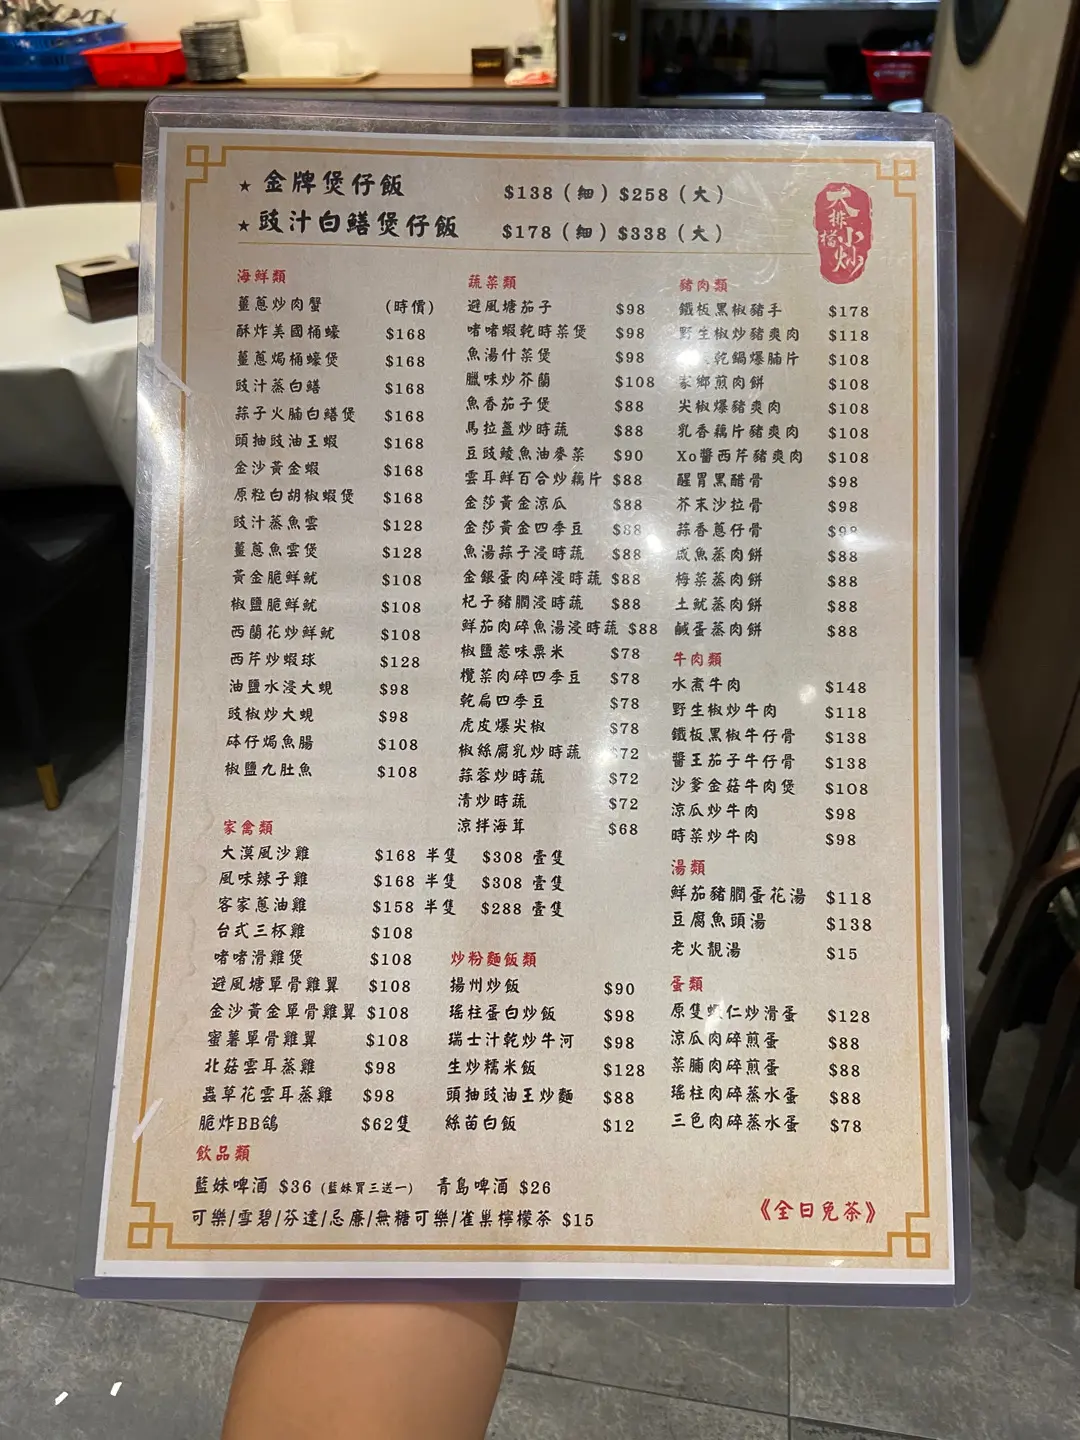 ★ 金牌煲仔飯 $138（細）$258（大）
★ 豉汁白鱔煲仔飯 $178（細）$338（大）
大排檔小炒
海鮮類
薑蔥炒肉蟹 (時價)
酥炸美國桶蠔 $168
薑蔥焗桶蠔煲 $168
豉汁蒸白鱔 $168
蒜子火腩白鱔煲 $168
頭抽豉油王蝦 $168
金沙黃金蝦 $168
原粒白胡椒蝦煲 $168
豉汁蒸魚雲 $128
薑蔥魚雲煲 $128
黃金脆鮮魷 $108
椒鹽脆鮮魷 $108
西蘭花炒鮮魷 $108
西芹炒蝦球 $128
油鹽水浸大蜆 $98
豉椒炒大蜆 $98
砵仔焗魚腸 $108
椒鹽九肚魚 $108
蔬菜類
避風塘茄子 $98
啫啫蝦乾時菜煲 $98
魚湯什菜煲 $98
臘味炒芥蘭 $108
魚香茄子煲 $88
馬拉盞炒時蔬 $88
豆豉鯪魚油麥菜 $90
雲耳鮮百合炒藕片 $88
金莎黃金涼瓜 $88
金莎黃金四季豆 $88
魚湯蒜子浸時蔬 $88
金銀蛋肉碎浸時蔬 $88
杞子豬膶浸時蔬 $88
鮮茄肉碎魚湯浸時蔬 $88
椒鹽惹味粟米 $78
欖菜肉碎四季豆 $78
乾扁四季豆 $78
虎皮爆尖椒 $78
椒絲腐乳炒時蔬 $72
蒜蓉炒時蔬 $72
清炒時蔬 $72
涼拌海茸 $68
豬肉類
鐵板黑椒豬手 $178
野生椒炒豬爽肉 $118
乾鍋爆腩片 $108
家鄉煎肉餅 $108
尖椒爆豬爽肉 $108
乳香藕片豬爽肉 $108
Xo醬西芹豬爽肉 $108
醒胃黑醋骨 $98
芥末沙拉骨 $98
蒜香蔥仔骨 $98
咸魚蒸肉餅 $88
梅菜蒸肉餅 $88
土魷蒸肉餅 $88
鹹蛋蒸肉餅 $88
牛肉類
水煮牛肉 $148
野生椒炒牛肉 $118
鐵板黑椒牛仔骨 $138
醬王茄子牛仔骨 $138
沙爹金菇牛肉煲 $108
涼瓜炒牛肉 $98
時菜炒牛肉 $98
湯類
鮮茄豬膶蛋花湯 $118
豆腐魚頭湯 $138
老火靚湯 $15
蛋類
原隻蝦仁炒滑蛋 $128
涼瓜肉碎煎蛋 $88
菜脯肉碎煎蛋 $88
瑤柱肉碎蒸水蛋 $88
三色肉碎蒸水蛋 $78
家禽類
大漠風沙雞 $168 半隻 $308 壹隻
風味辣子雞 $168 半隻 $308 壹隻
客家蔥油雞 $158 半隻 $288 壹隻
台式三杯雞 $108
啫啫滑雞煲 $108
避風塘單骨雞翼 $108
金沙黃金單骨雞翼 $108
蜜薯單骨雞翼 $108
北菇雲耳蒸雞 $98
蟲草花雲耳蒸雞 $98
脆炸BB鴿 $62隻
炒粉麵飯類
揚州炒飯 $90
瑤柱蛋白炒飯 $98
瑞士汁乾炒牛河 $98
生炒糯米飯 $128
頭抽豉油王炒麵 $88
絲苗白飯 $12
飲品類
藍妹啤酒 $36 (藍妹買三送一) 青島啤酒 $26
可樂/雪碧/芬達/忌廉/無糖可樂/雀巢檸檬茶 $15
《全日免茶》